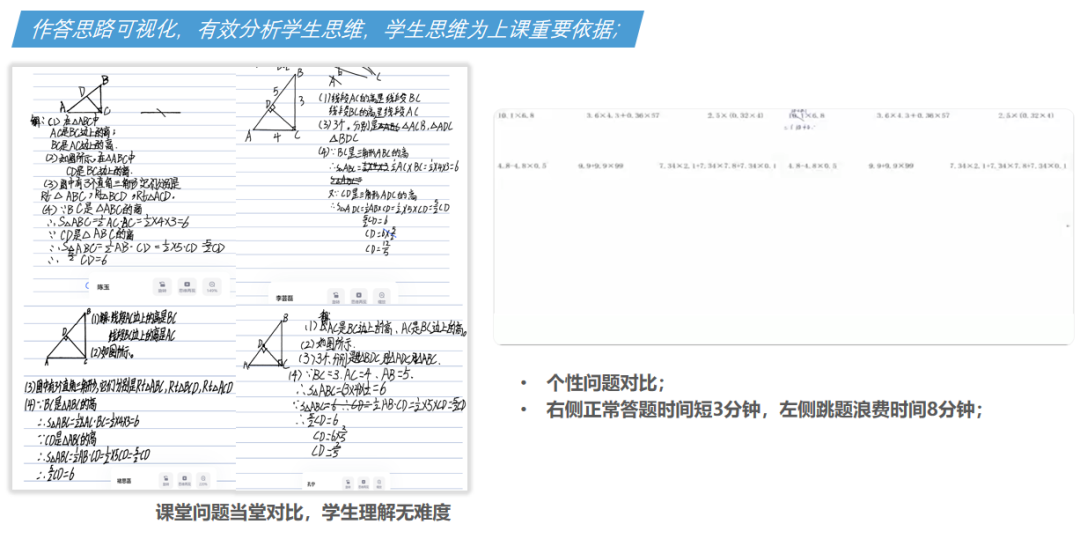 作答思路可视化，有效分析学生思维，学生思维为上课重要依据；
B
D
A
C
解：(1)在△ABC中
AC是BC边上的高；
BC是AC边上的高.
(2)如图所示，在△ABC中
CD是BC边上的高.
(3)图中有3个直角三角形它们分别是
Rt△ABC，Rt△BCD，Rt△ACD.
(4)∵BC是△ABC的高
∴S△ABC=½AC·BC=½×4×3=6
∵CD是△ABC的高
∴S△ABC=½AB·CD=½×5·CD=5/2CD
∴CD=6
陈玉
B
5
3
D
A
4
C
(1)线段AC的高是线段BC
线段BC的高是线段AC
(3)3个，分别是△ACB，△ADC
△BDC
(4)∵BC是三角形ABC的高
∴S△ABC=½AC×BC=½×4×3=6
又∵CD是三角形ADC的高
∴S△ADC=½AB×CD=½×5×CD=5/2CD
5/2CD=6
CD=12/5
B
D
A
C
(1)解：线段AC边上的高是BC
线段BC边上的高是AC
(2)如图所示.
(3)图中有3个直角三角形，它们分别是Rt△ABC，Rt△BCD，Rt△ACD
(4)∵BC是△ABC的高
∴S△ABC=½AC·BC=½×4×3=6
∵CD是△ABC的高
∴S△ABC=½AB·CD=½×5CD=5/2CD
∴5/2CD=6
B
D
A
C
(2)如图所示.
(4)∵BC=3.AC=4.AB=5.
∴S△ABC=(3×4)½=6
5/2CD=6
课堂问题当堂对比，学生理解无难度
3.6×4.3+0.36×57
2.5×(0.32×4)
3.6×4.3+0.36×57
2.5×(0.32×4)
4.8-4.8×0.5
9.9+9.9×99
7.34×2.1+7.34×7.8+7.34×0.1
4.8-4.8×0.5
9.9+9.9×99
7.34×2.1+7.34×7.8+7.34×0.1
• 个性问题对比；
• 右侧正常答题时间短3分钟，左侧跳题浪费时间8分钟；